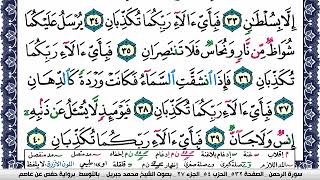 إِلَّا بِسُلْطَانٍ ٣٣ فَبِأَيِّ آلَاءِ رَبِّكُمَا تُكَذِّبَانِ ٣٤ يُرْسَلُ عَلَيْكُمَا
شُوَاظٌ مِّن نَّارٍ وَنُحَاسٌ فَلَا تَنتَصِرَانِ ٣٥ فَبِأَيِّ آلَاءِ رَبِّكُمَا
تُكَذِّبَانِ ٣٦ فَإِذَا انشَقَّتِ السَّمَاءُ فَكَانَتْ وَرْدَةً كَالدِّهَانِ
٣٧ فَبِأَيِّ آلَاءِ رَبِّكُمَا تُكَذِّبَانِ ٣٨ فَيَوْمَئِذٍ لَّا يُسْأَلُ عَن ذَنبِهِ
إِنسٌ وَلَا جَانٌّ ٣٩ فَبِأَيِّ آلَاءِ رَبِّكُمَا تُكَذِّبَانِ ٤٠
سورة الرحمن الصفحة ٥٣٢ الحزب ٥٤ الجزء ٢٧ بصوت الشيخ محمد جبريل بالتوسط برواية حفص عن عاصم